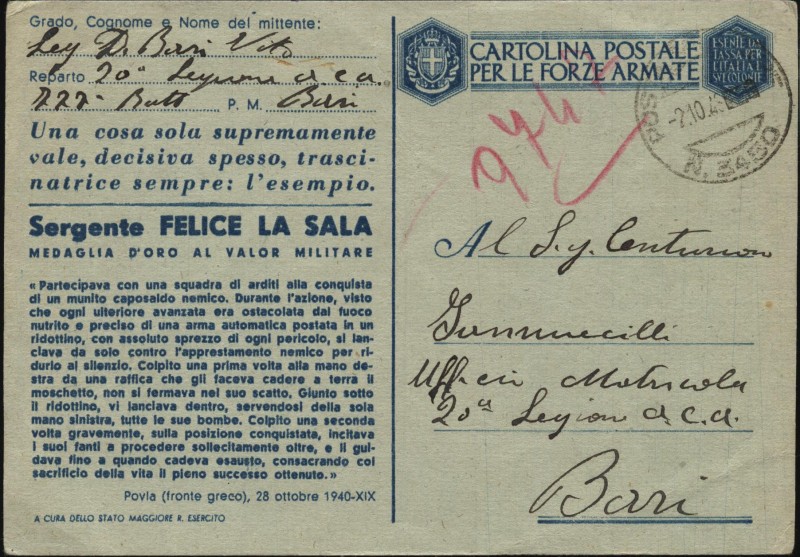 Grado, Cognome e Nome del mittente:
Leg D. Bari Vito
Reparto 20ª Legione d.c.a.
Batt P. M. Bari
Una cosa sola supremamente
vale, decisiva spesso, trasci-
natrice sempre: l'esempio.
Sergente FELICE LA SALA
MEDAGLIA D'ORO AL VALOR MILITARE
«Partecipava con una squadra di arditi alla conquista
di un munito caposaldo nemico. Durante l'azione, visto
che ogni ulteriore avanzata era ostacolata dal fuoco
nutrito e preciso di una arma automatica postata in un
ridottino, con assoluto sprezzo di ogni pericolo, si lan-
ciava da solo contro l'apprestamento nemico per ri-
durlo al silenzio. Colpito una prima volta alla mano de-
stra da una raffica che gli faceva cadere a terra il
moschetto, non si fermava nel suo scatto. Giunto sotto
il ridottino, vi lanciava dentro, servendosi della sola
mano sinistra, tutte le sue bombe. Colpito una seconda
volta gravemente, sulla posizione conquistata, incitava
i suoi fanti a procedere sollecitamente oltre, e li gui-
dava fino a quando cadeva esausto, consacrando col
sacrificio della vita il pieno successo ottenuto.»
Povla (fronte greco), 28 ottobre 1940-XIX
A CURA DELLO STATO MAGGIORE R. ESERCITO
CARTOLINA POSTALE
PER LE FORZE ARMATE
ESENTE DA
TASSA PER
L'ITALIA
SUE COLONIE
-2.10.4
N. 3450
Al S.g. Centurion
Ufficio Matricola
20ª Legione d.c.a.
Bari